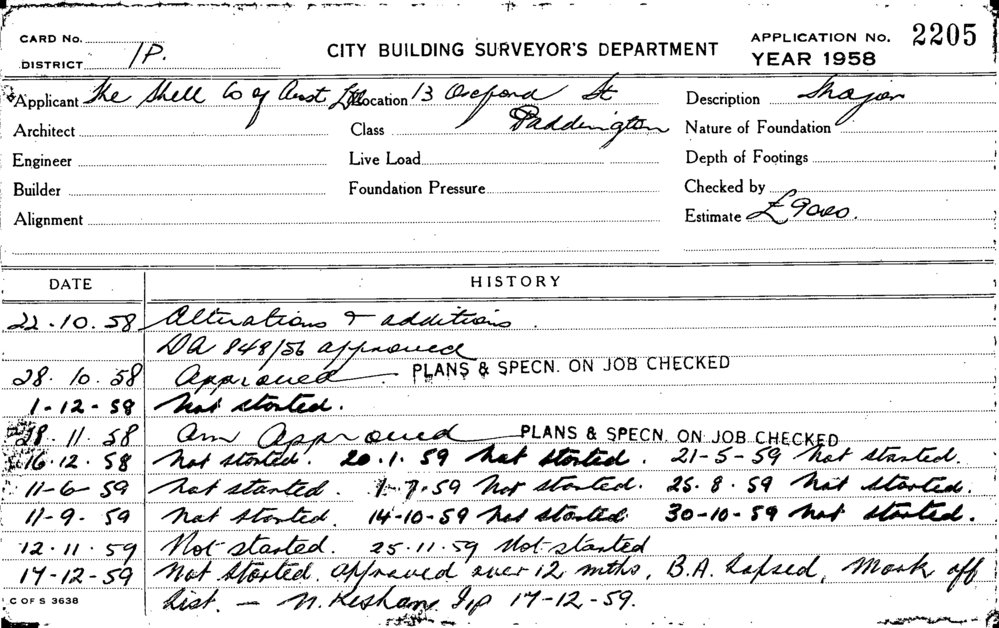 CARD No. APPLICATION No. 2205
DISTRICT 1P. CITY BUILDING SURVEYOR'S DEPARTMENT YEAR 1958
Applicant The Shell Co of Aust Ltd Location 13 Oxford St Description
Architect Class Paddington Nature of Foundation
Engineer Live Load Depth of Footings
Builder Foundation Pressure Checked by
Alignment Estimate £9000.
DATE HISTORY
22.10.58 Alterations & additions.
DA 848/56 approved
28.10.58 Approved PLANS & SPECN. ON JOB CHECKED
1-12-58 Not started.
28.11.58 Am Approved PLANS & SPECN. ON JOB CHECKED
16.12.58 Not started. 20.1.59 Not started. 21-5-59 Not started.
11-6-59 Not started. 1-7-59 Not started. 25.8.59 Not started.
11-9-59 Not started. 14-10-59 Not started 30-10-59 Not started.
12.11.59 Not started. 25.11.59 Not started
17-12-59 Not started. Approved over 12 mths, B.A. Lapsed, Mark off
List. – 17-12-59.
C OF S 3638